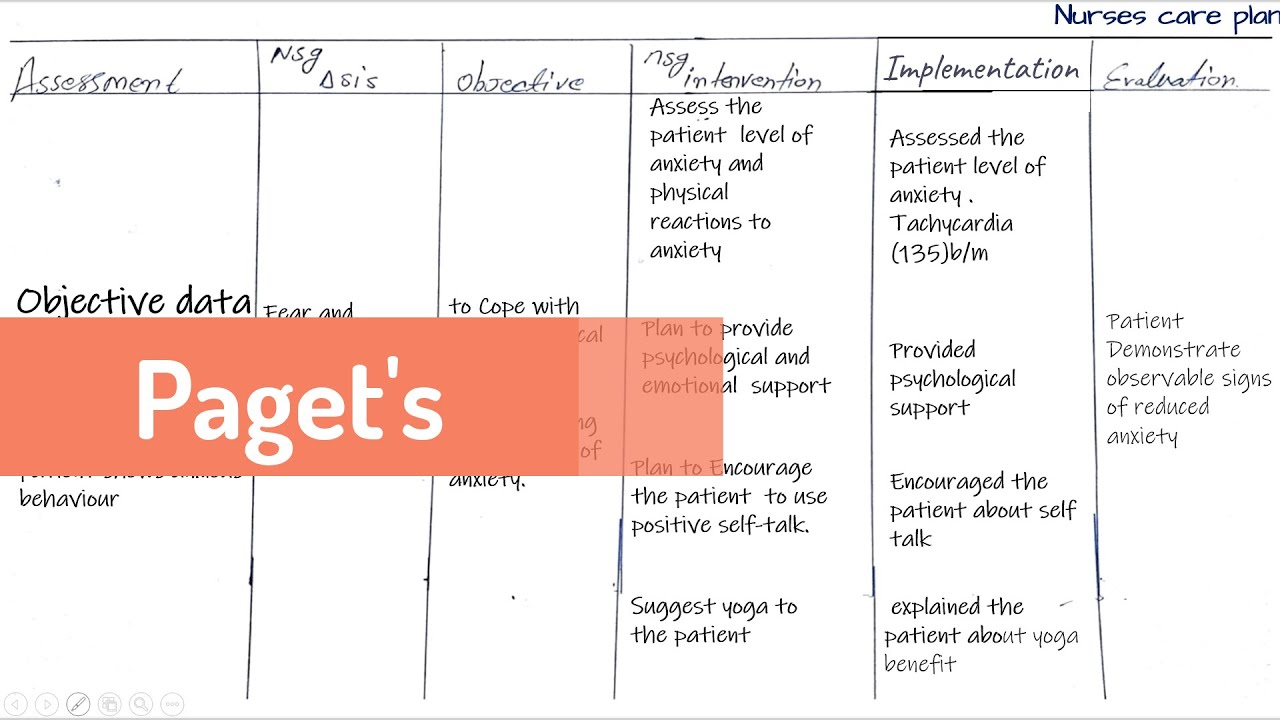 Nurses care plan
Assessment
Nsg
Dsis
Objective
nsg
intervention
Implementation
Evaluation.
Objective data
behaviour
Fear and
to Cope with
cal
ng
of
anxiety.
Assess the
patient level of
anxiety and
physical
reactions to
anxiety
Plan to provide
psychological and
emotional support
Plan to Encourage
the patient to use
positive self-talk.
Suggest yoga to
the patient
Assessed the
patient level of
anxiety .
Tachycardia
(135)b/m
Provided
psychological
support
Encouraged the
patient about self
talk
explained the
patient about yoga
benefit
Patient
Demonstrate
observable signs
of reduced
anxiety
Paget's